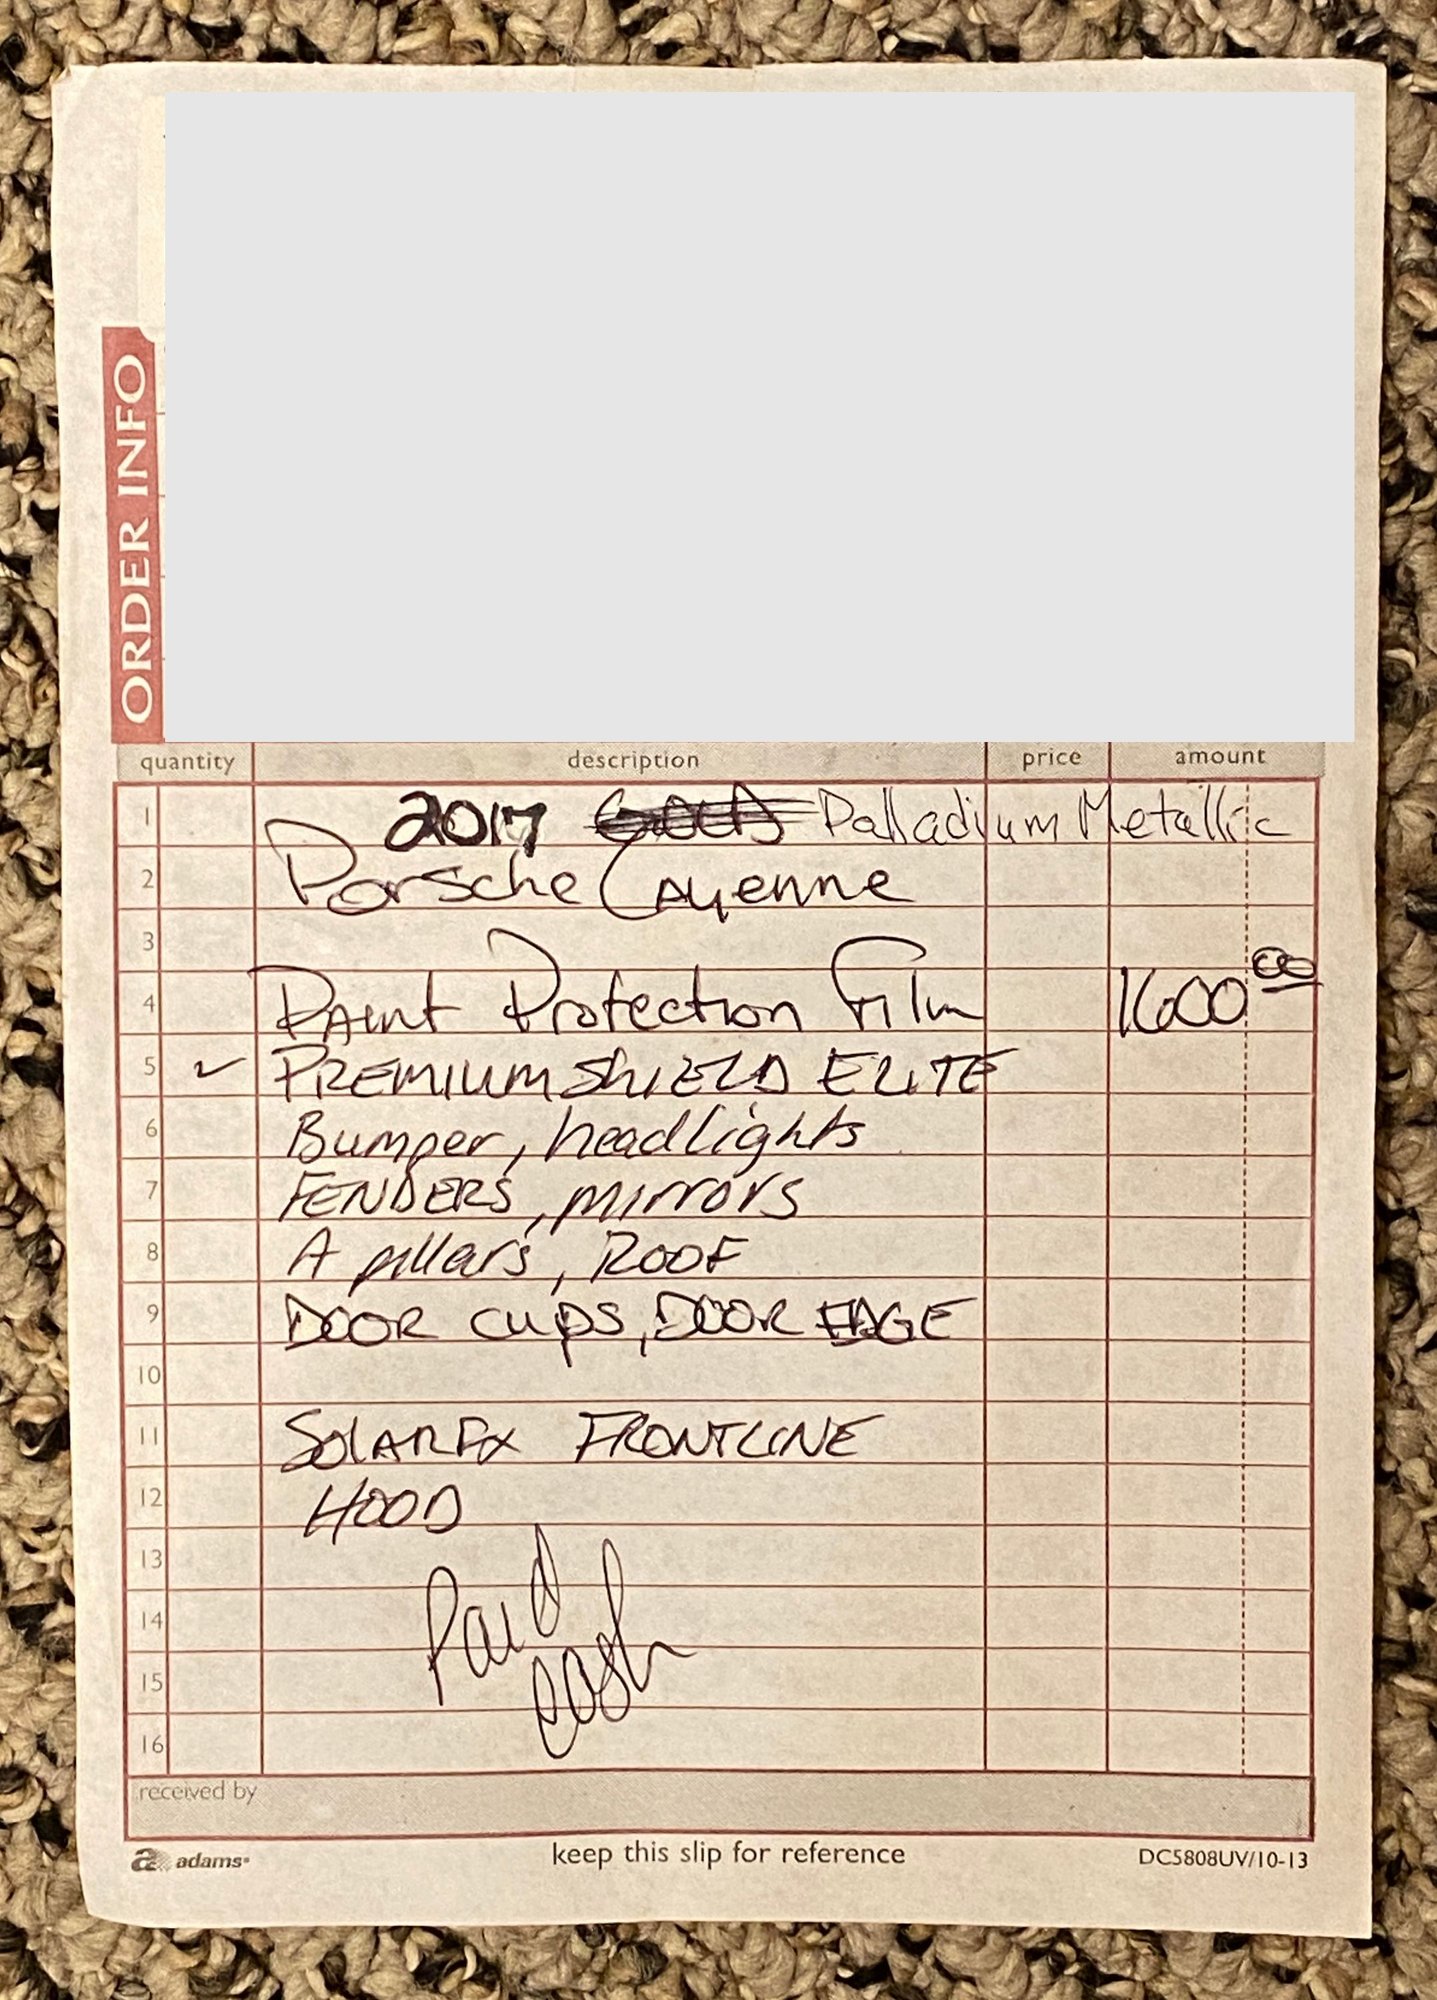 ORDER INFO
quantity description price amount
1 2017 Palladium Metallic
2 Porsche Cayenne
3
4 Paint Protection Film 1600 00
5 ✓ PREMIUMSHIELD ELITE
6 Bumper, headlights
7 FENDERS, mirrors
8 A pillars, ROOF
9 DOOR cups, DOOR EDGE
10
11 SOLARFX FRONTLINE
12 HOOD
13
14 Paid
15 cash
16
received by
adams
keep this slip for reference
DC5808UV/10-13